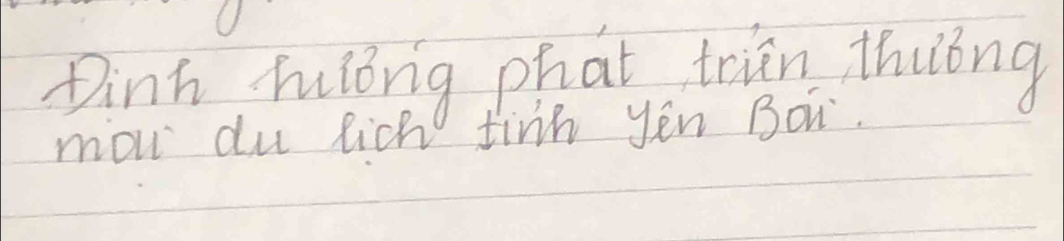 Định hướng phát triển thương
mại du lịch tỉnh Yên Bái.